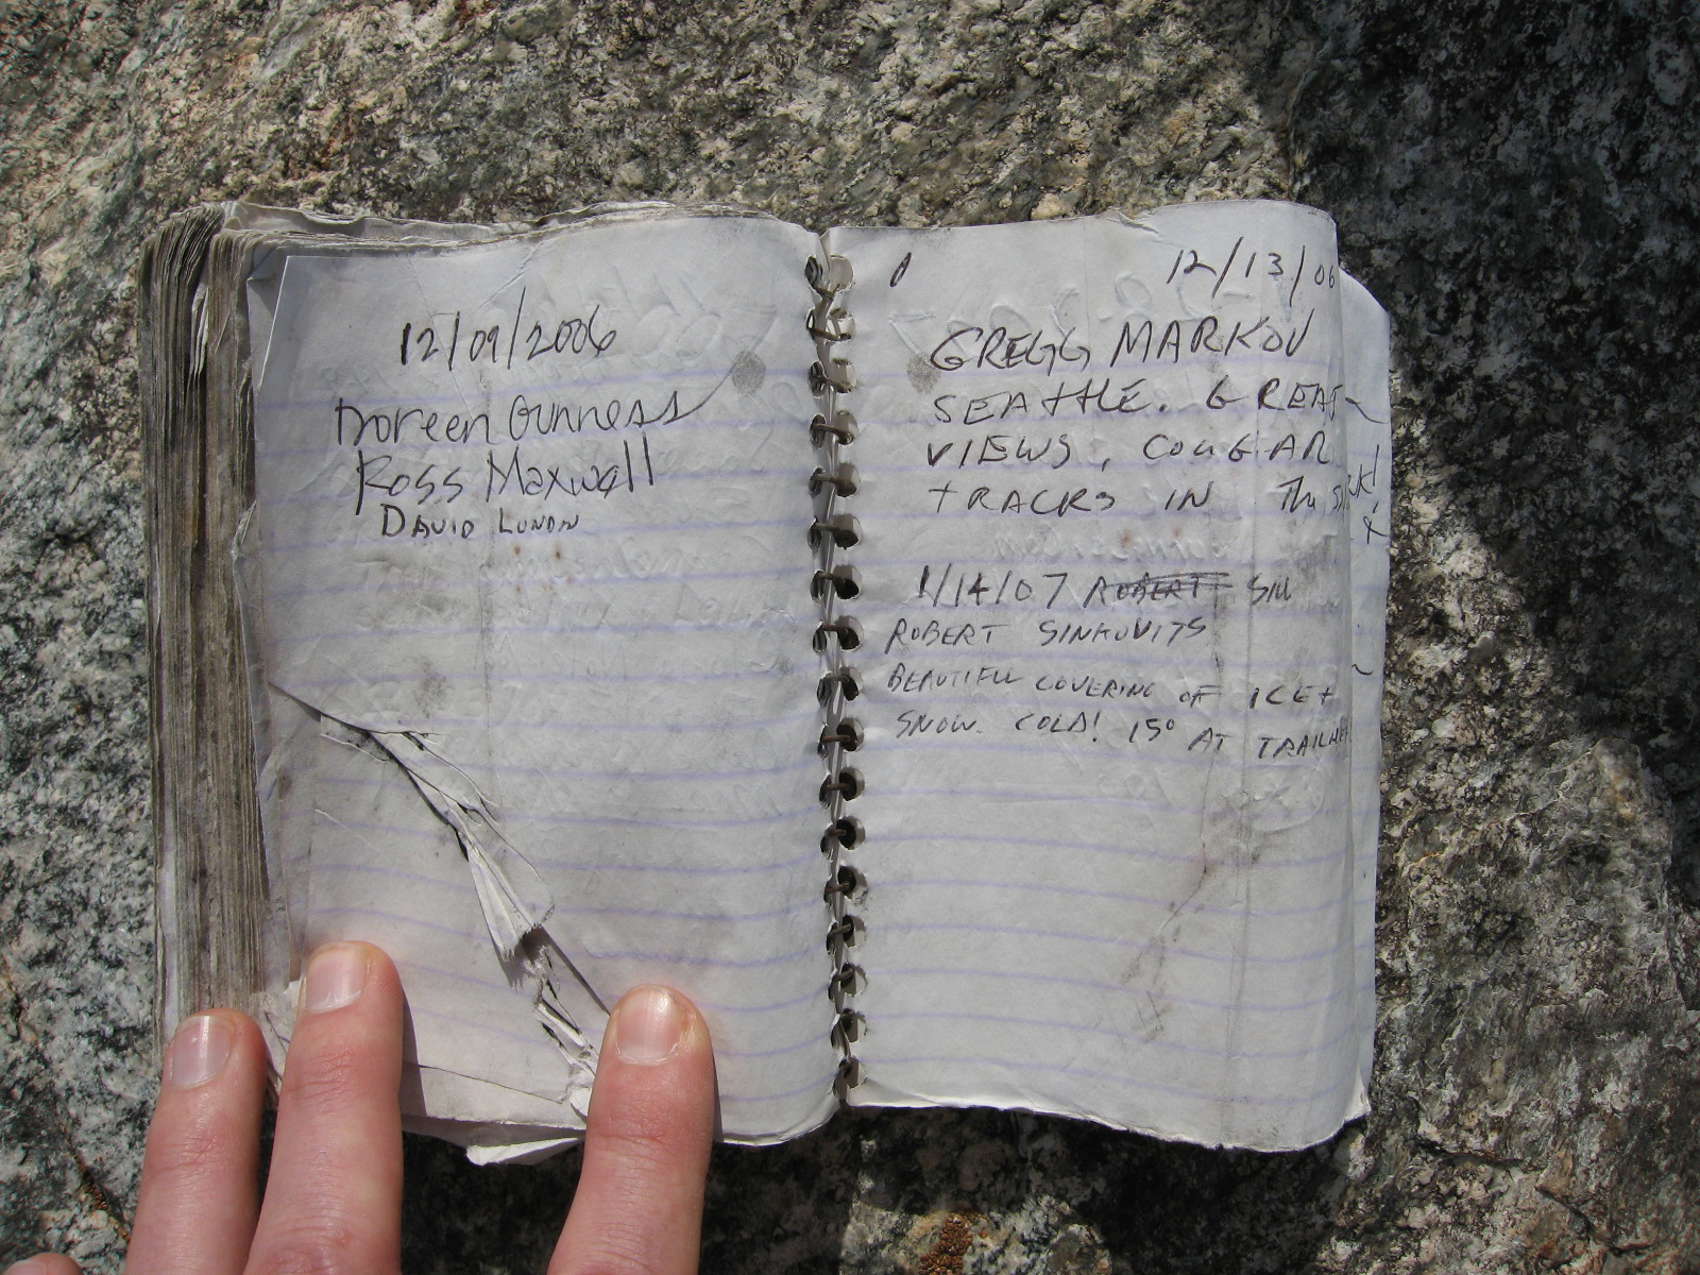 12/09/2006
Noreen Gunness
Ross Maxwell
DAVID LUNDN
12/13/06
GREGG MARKOV
SEATTLE. GREAT
VIEWS, COUGAR
TRACKS IN The
1/14/07 ROBERT
ROBERT SINKOVITS
BEAUTIFUL COVERING OF ICE +
SNOW. COLD! 15° AT